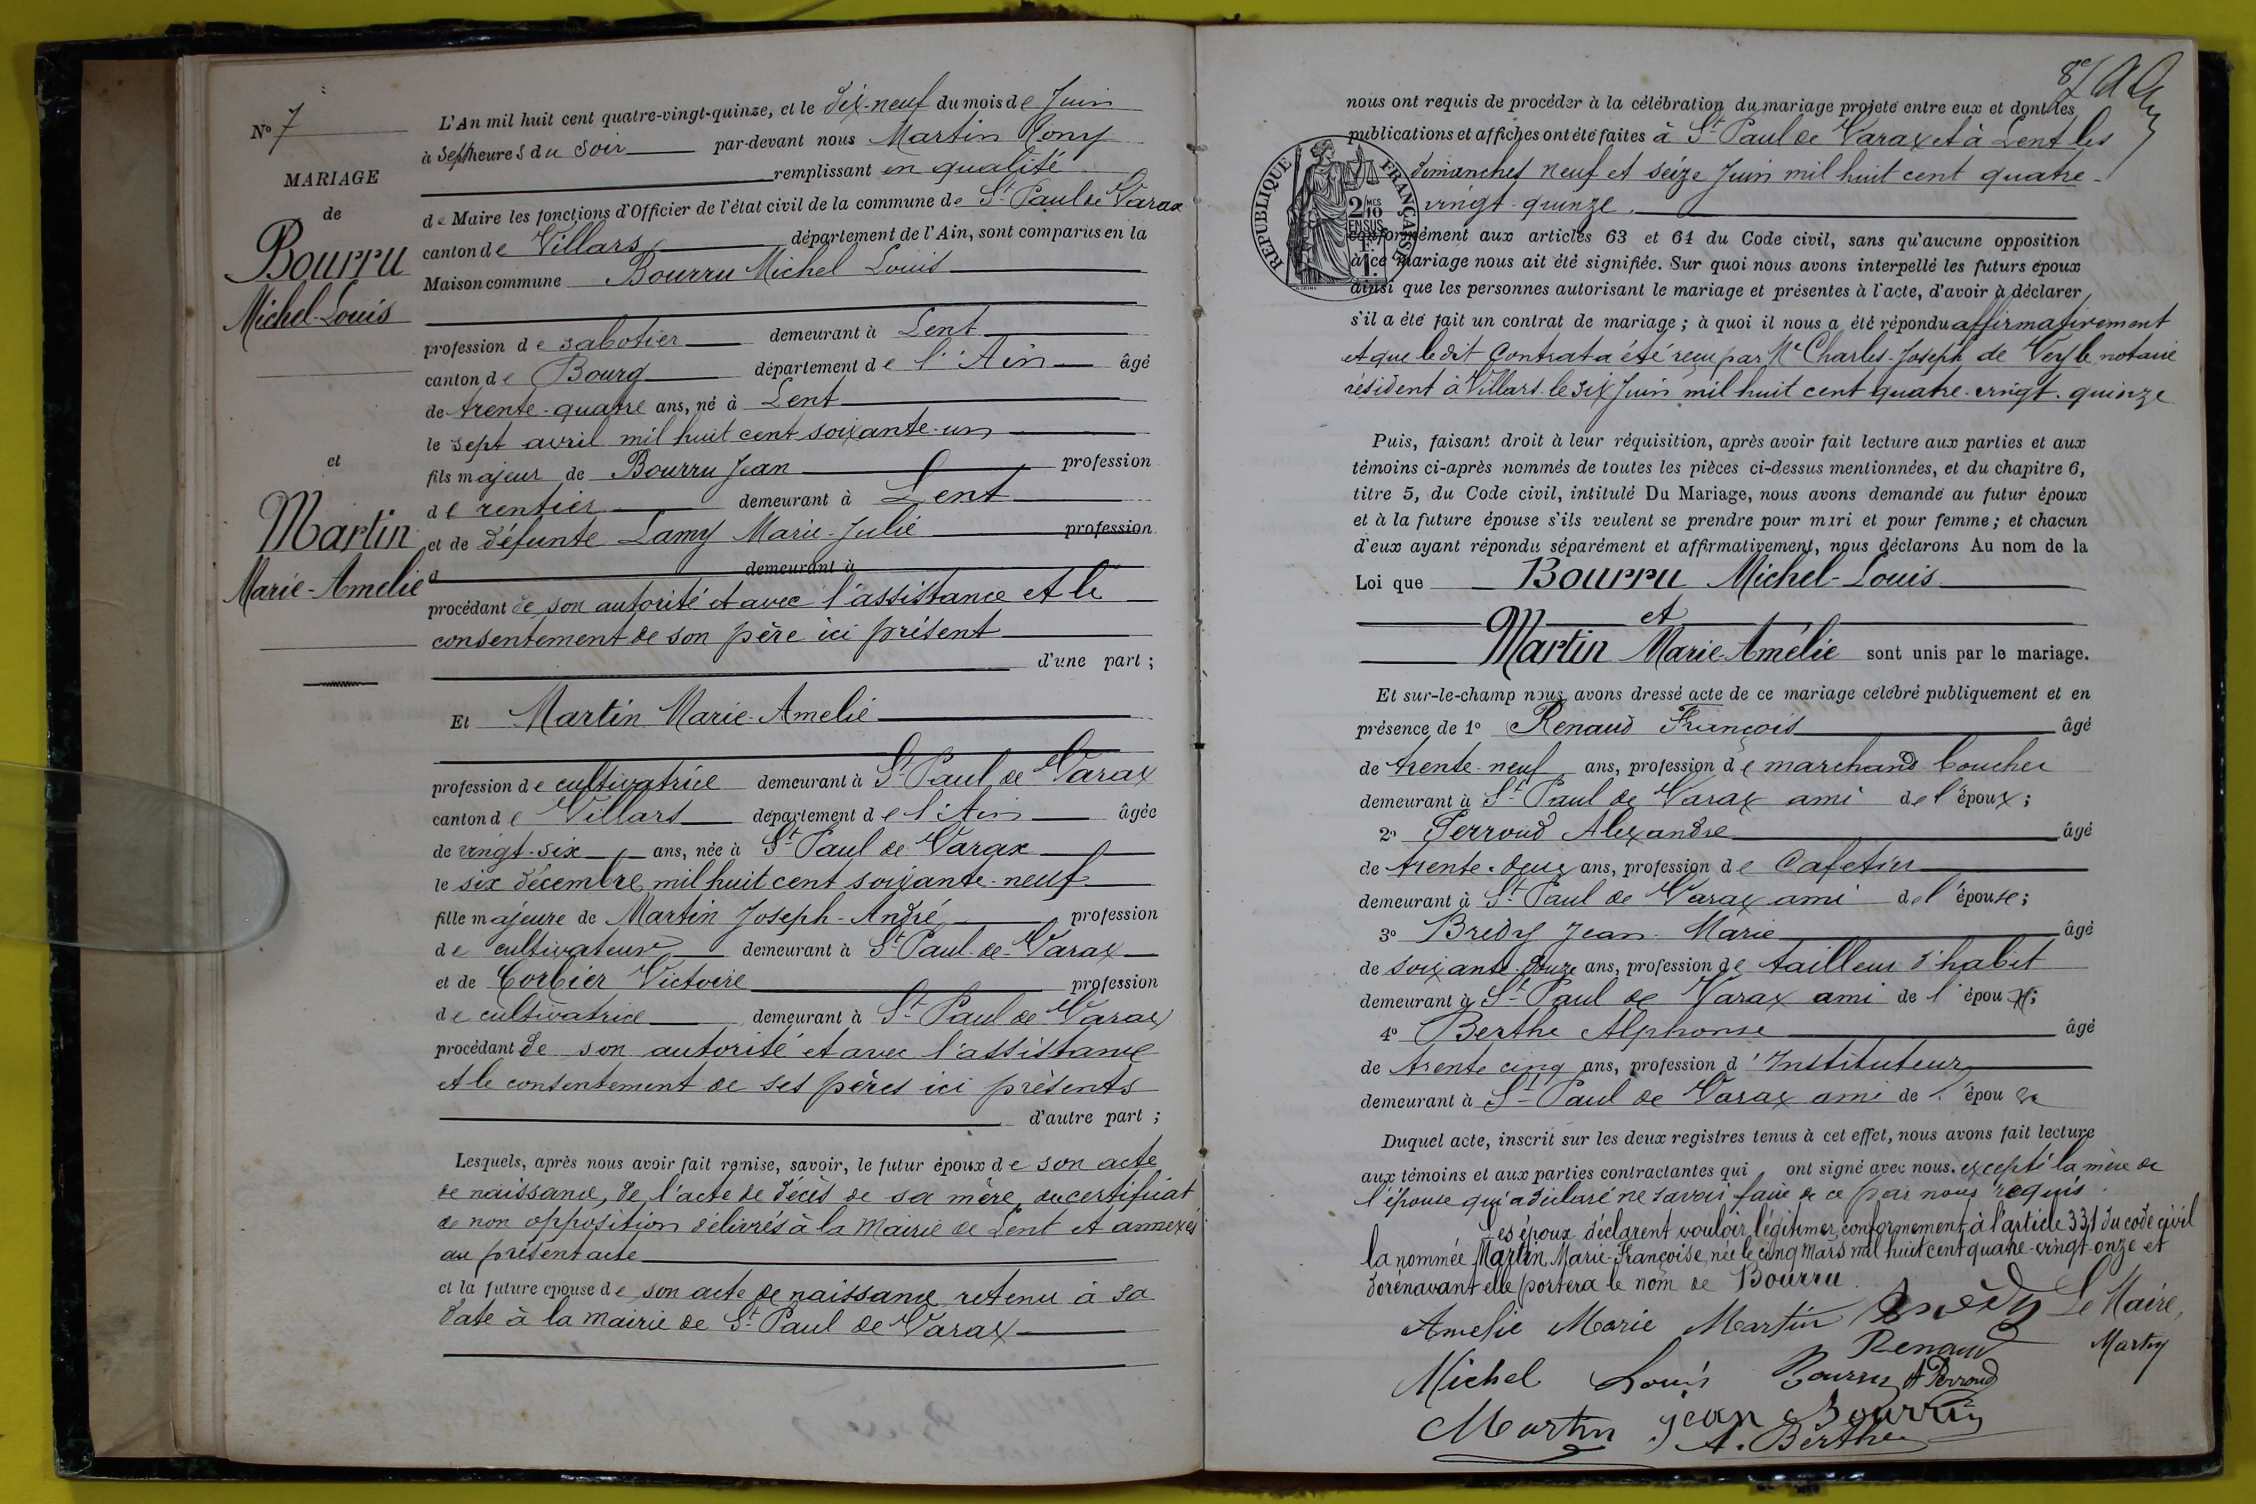 N° 7
MARIAGE
de
Bourru
Michel-Louis
et
Martin
Marie-Amelie
L'An mil huit cent quatre-vingt-quinze, et le dix-neuf du mois de Juin
à sept heures du soir par-devant nous Martin Rony
remplissant en qualité
de Maire les fonctions d'Officier de l'état civil de la commune de St Paul de Varax
canton de Villars département de l'Ain, sont comparus en la
Maison commune Bourru Michel Louis
profession de sabotier demeurant à Lent
canton de Bourg département de l'Ain âgé
de trente-quatre ans, né à Lent
le sept avril mil huit cent soixante-un
fils majeur de Bourru Jean profession
de rentier demeurant à Lent
et de défunte Lamy Marie-Julie profession
d demeurant à
procédant de son autorité et avec l'assistance et le
consentement de son père ici présent
d'une part ;
Et Martin Marie-Amelie
profession de cultivatrice demeurant à St Paul de Varax
canton de Villars département de l'Ain âgée
de vingt-six ans, née à St Paul de Varax
le six décembre mil huit cent soixante-neuf
fille majeure de Martin Joseph-André profession
de cultivateur demeurant à St Paul-de-Varax
et de Corbier Victoire profession
de cultivatrice demeurant à St Paul de Varax
procédant de son autorité et avec l'assistance
et le consentement de ses pères ici présents
d'autre part ;
Lesquels, après nous avoir fait remise, savoir, le futur époux de son acte
de naissance, de l'acte de décès de sa mère, du certificat
de non opposition délivrés à la Mairie de Lent et annexés
au présent acte
et la future epouse de son acte de naissance retenu à sa
date à la mairie de St Paul de Varax
8e
nous ont requis de procéder à la célébration du mariage projeté entre eux et dont les
publications et affiches ont été faites à St Paul de Varax et à Lent les
dimanches neuf et seize Juin mil huit cent quatre-
vingt-quinze.
RÉPUBLIQUE FRANÇAISE
2 MES
10
EN SUS
1 F.
conformément aux articles 63 et 64 du Code civil, sans qu'aucune opposition
à ce mariage nous ait été signifiée. Sur quoi nous avons interpellé les futurs époux
ainsi que les personnes autorisant le mariage et présentes à l'acte, d'avoir à déclarer
s'il a été fait un contrat de mariage ; à quoi il nous a été répondu affirmativement
et que le dit Contrat a été reçu par Me Charles-Joseph de Veyle notaire
résident à Villars le six Juin mil huit cent quatre-vingt-quinze
Puis, faisant droit à leur réquisition, après avoir fait lecture aux parties et aux
témoins ci-après nommés de toutes les pièces ci-dessus mentionnées, et du chapitre 6,
titre 5, du Code civil, intitulé Du Mariage, nous avons demandé au futur époux
et à la future épouse s'ils veulent se prendre pour mari et pour femme ; et chacun
d'eux ayant répondu séparément et affirmativement, nous déclarons Au nom de la
Loi que Bourru Michel-Louis
et
Martin Marie-Amélie sont unis par le mariage.
Et sur-le-champ nous avons dressé acte de ce mariage célébré publiquement et en
présence de 1° Renaud François âgé
de trente-neuf ans, profession de marchand boucher
demeurant à St Paul de Varax ami de l'époux ;
2° Perroud Alexandre âgé
de trente-deux ans, profession de Cafetier
demeurant à St Paul de Varax ami de l'épouse ;
3° Bredy Jean-Marie âgé
de soixante-douze ans, profession de tailleur d'habit
demeurant à St Paul de Varax ami de l'époux ;
4° Berthe Alphonse âgé
de trente cinq ans, profession d'Instituteur
demeurant à St Paul de Varax ami de l'épouse
Duquel acte, inscrit sur les deux registres tenus à cet effet, nous avons fait lecture
aux témoins et aux parties contractantes qui ont signé avec nous. excepté la mère de
l'épouse qui a déclaré ne savoir faire de ce par nous requis.
Les époux déclarent vouloir légitimer conformément à l'article 331 du code civil
la nommée Martin Marie-Françoise née le cinq Mars mil huit cent quatre-vingt-onze et
dorénavant elle portera le nom de Bourru.
Amelie Marie Martin Bredy Le Maire,
Renaud Martin
Michel Louis Bourru A Perroud
Martin Jean Bourru
A. Berthe